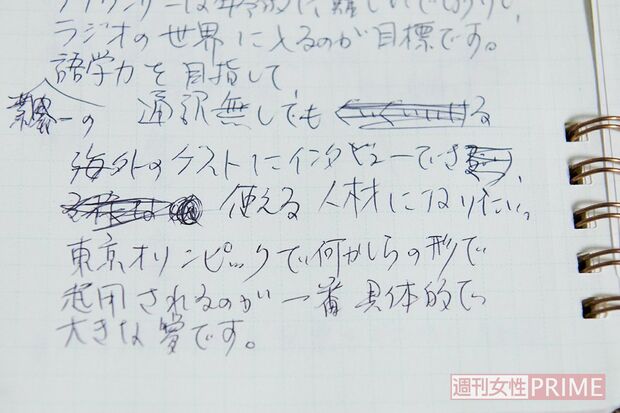 アナウンサーは年齢的に難しいでしょうけど
ラジオの世界に入るのが目標です。
語学力を目指して
業界一の
通訳無しでも る
海外のゲストにインタビューでき
使える人材になりたいっ
東京オリンピックで何かしらの形で
起用されるのが一番具体的で
大きな夢です。
週刊女性PRIME